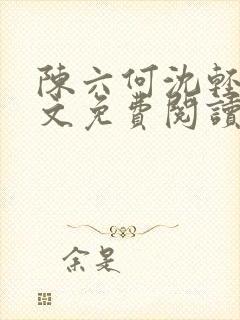 陳六何沈輕
文免費閱讀
余是